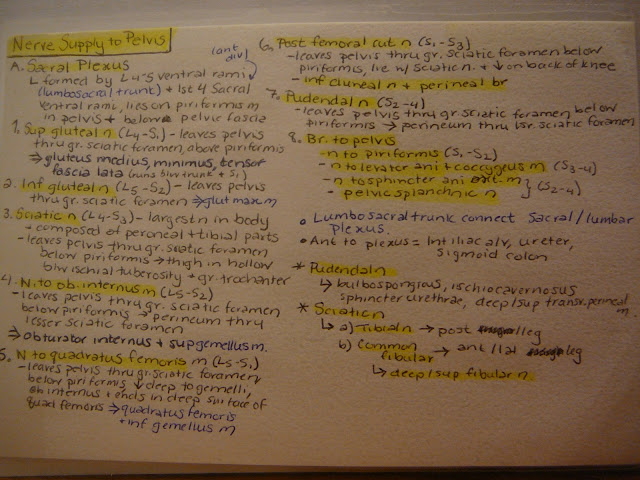 Nerve Supply to Pelvis
A. Sacral Plexus
(ant div)
↳ formed by L4-5 ventral rami
(lumbosacral trunk) + 1st 4 Sacral
ventral rami, lies on piriformis m
in pelvis + below pelvic fascia
1. Sup gluteal n (L4-S1) - leaves pelvis
thru gr. sciatic foramen, above piriformis
⇒ gluteus medius, minimus, tensor
fascia lata (runs btw trunk + S1)
2. Inf gluteal n (L5-S2) - leaves pelvis
thru gr. sciatic foramen ⇒ glut max m
3. Sciatic n (L4-S3) - largest n in body
- composed of peroneal + tibial parts
- leaves pelvis thru gr. sciatic foramen
below piriformis → thigh in hollow
b/w ischial tuberosity + gr. trochanter
4. N. to ob. internus m (L5-S2)
- leaves pelvis thru gr. sciatic foramen
below piriformis → perineum thru
lesser sciatic foramen
⇒ obturator internus + sup gemellus m.
5. N to quadratus femoris m (L5-S1)
- leaves pelvis thru gr. sciatic foramen,
below piriformis ↓ deep to gemelli,
ob internus + ends in deep surface of
quad femoris ⇒ quadratus femoris
+ inf gemellus m
6. Post femoral cut n (S1-S3)
- leaves pelvis thru gr. sciatic foramen below
piriformis, lie w/ sciatic n. + ↓ on back of knee
- inf cluneal n + perineal br
7. Pudendal n (S2-4)
- leaves pelvis thru gr sciatic foramen below
piriformis → perineum thru lsr. sciatic foramen
8. Br. to pelvis
- n to piriformis (S1-S2)
- n to levator ani + coccygeus m (S3-4)
- n to sphincter ani ext m
- pelvic splanchnic n } (S2-4)
• Lumbosacral trunk connect Sacral/lumbar
plexus.
• Ant to plexus = Int iliac a/v, ureter,
sigmoid colon
* Pudendal n
↳ bulbospongios, ischiocavernosus
sphincter urethrae, deep/sup transv. perineal
m.
* Sciatic n
↳ a) Tibial n → post leg
b) Common → ant/lat leg
fibular
↳ deep/sup fibular n.